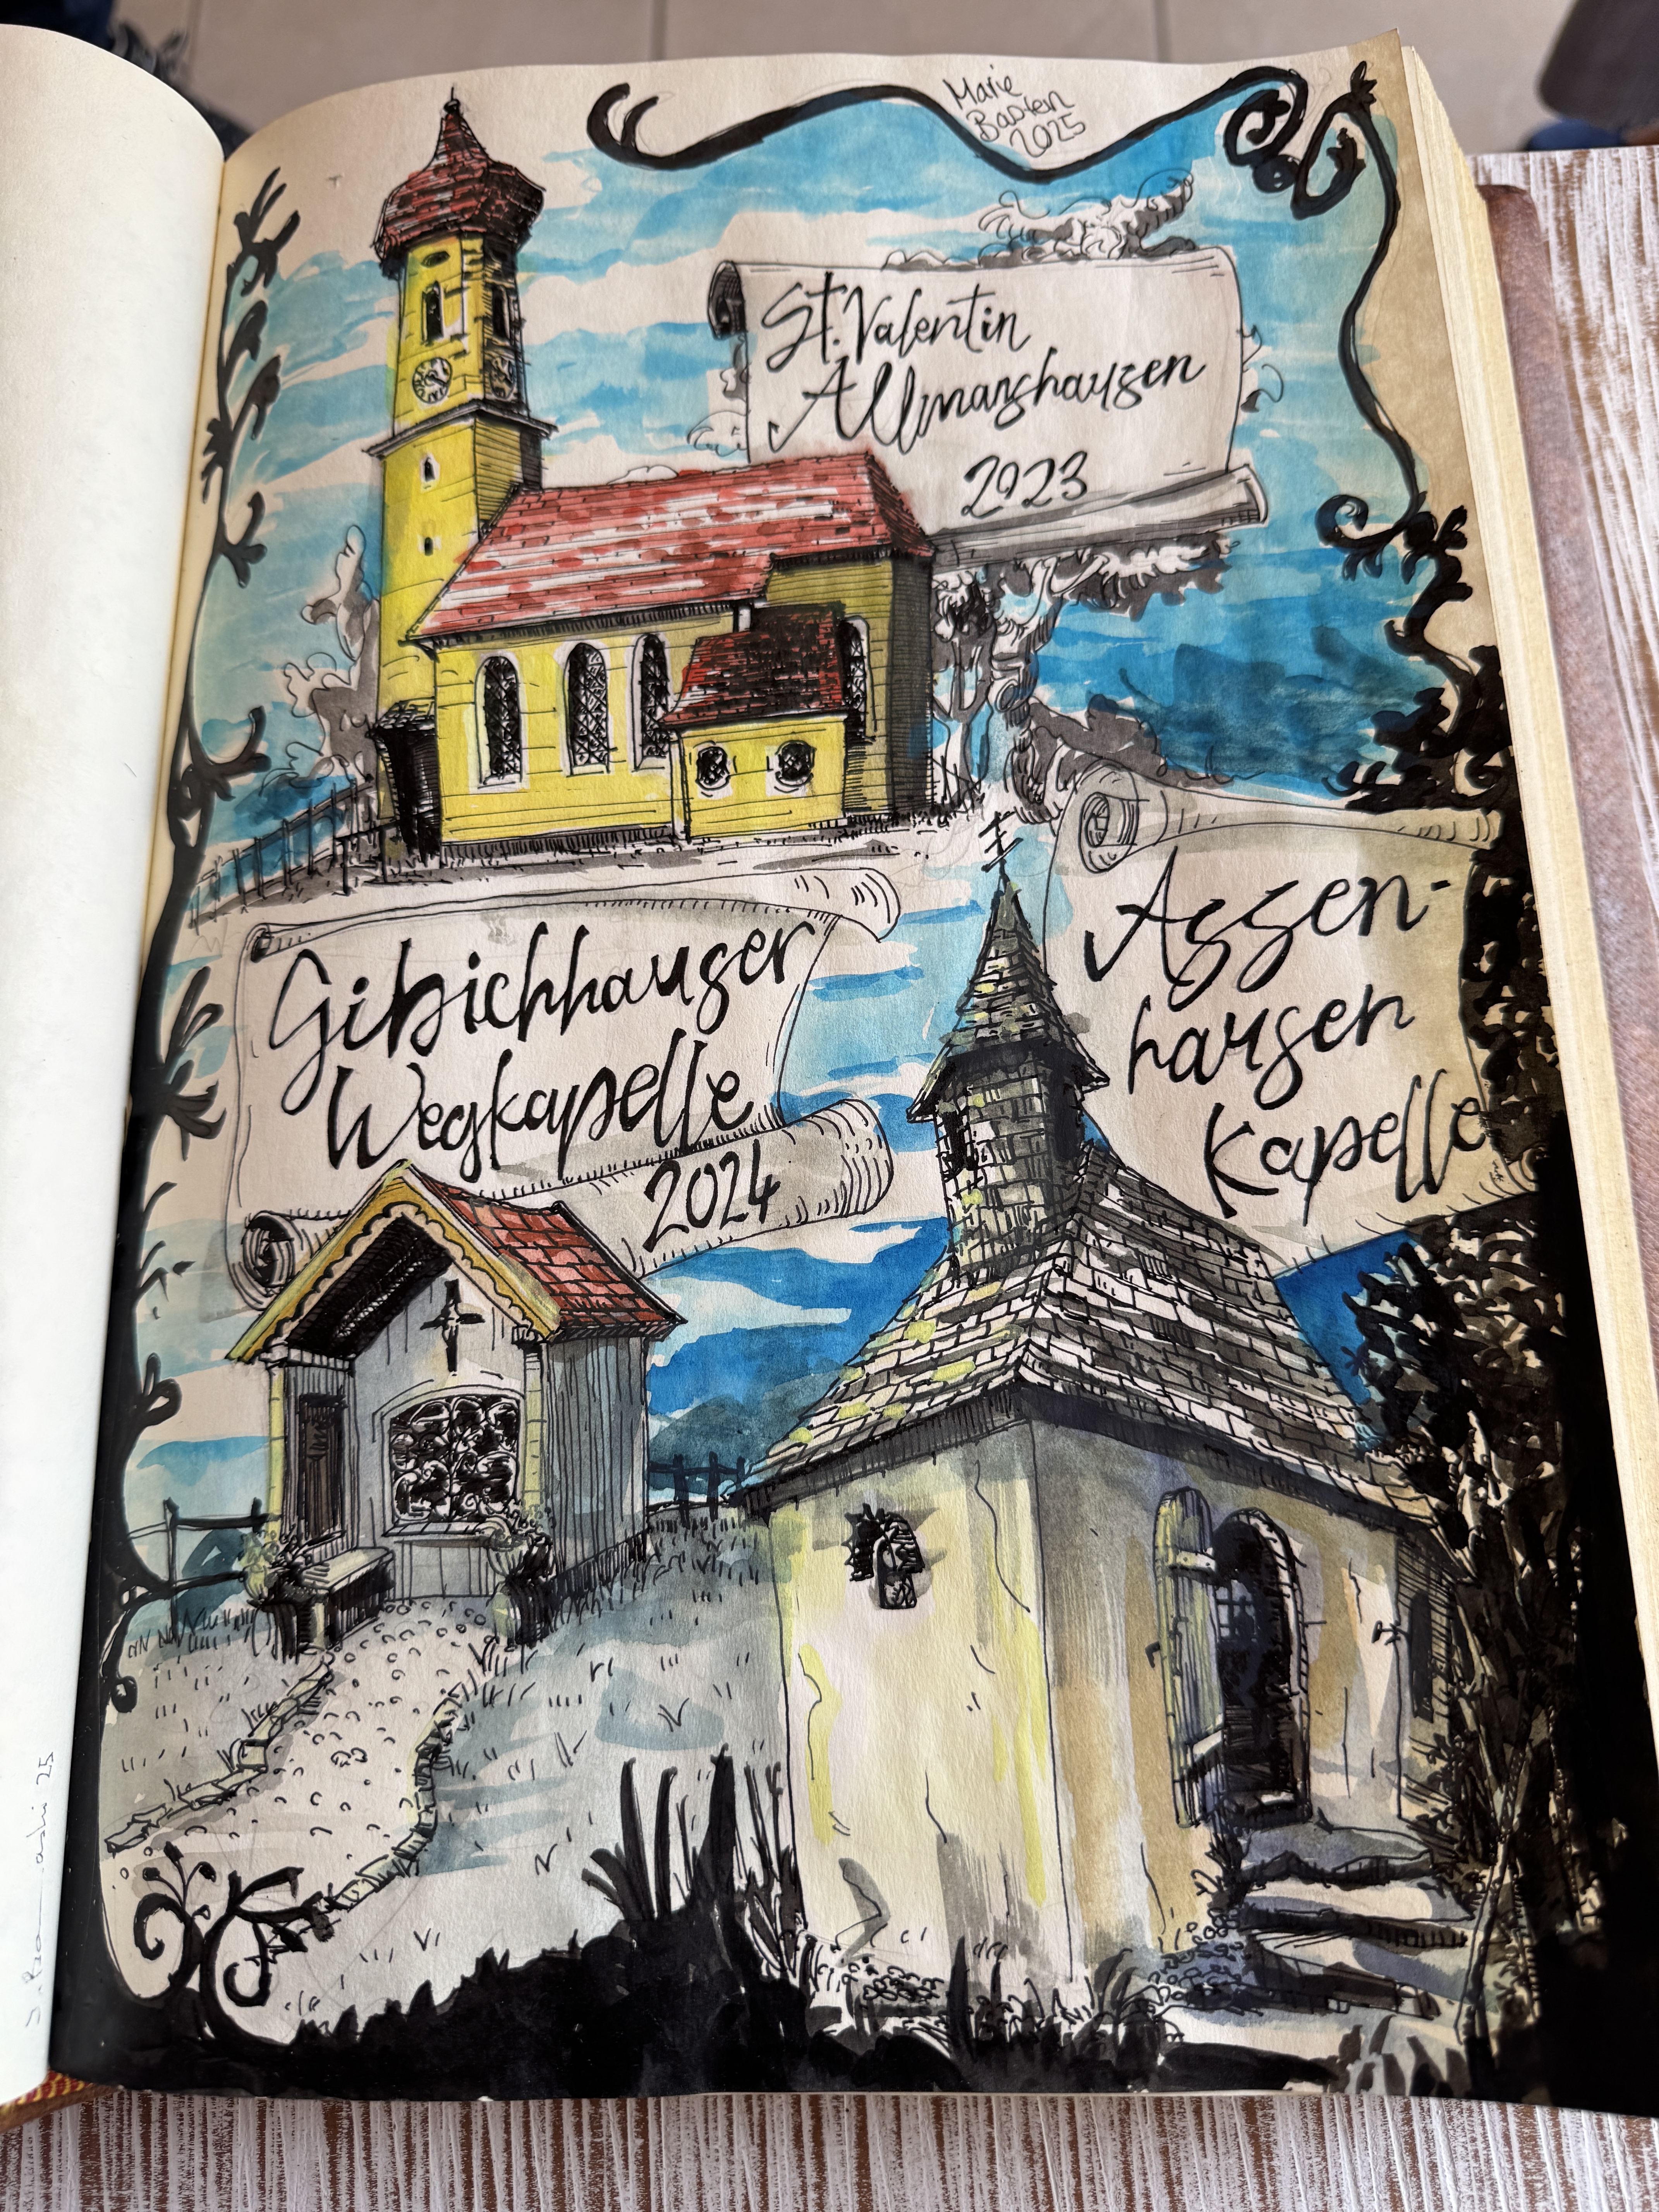 Marie
Bastein
2025
St. Valentin
Allmanshausen
2023
Gibichhauser
Wegkapelle
2024
Assen-
hausen
Kapelle
25